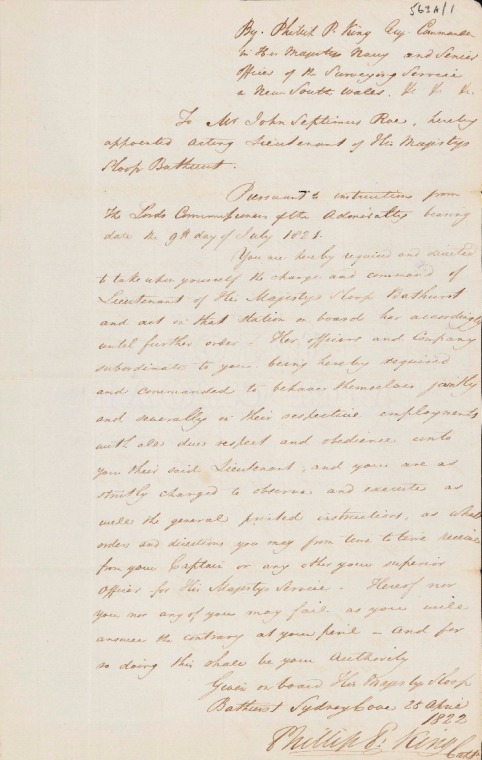 563A/1
By. Philip P. King Esq. Commander
in His Majestys Navy and Senior
Officer of the Surveying Service
in New South Wales. &c &c &c.
To Mr John Septimus Roe, hereby
appointed Acting Lieutenant of His Majestys
Sloop Bathurst.
Pursuant to instructions from
the Lords Commissioners of the Admiralty bearing
date the 9th day of July 1821.
You are hereby required and directed
to take upon yourself the charge and command of
Lieutenant of His Majestys Sloop Bathurst
and act in that Station on board her accordingly
until further order. Her officers and Company
subordinate to you being hereby required
and commanded to behave themselves jointly
and severally in their respective employments
with all due respect and obedience unto
you their said Lieutenant, and you are as
strictly charged to observe and execute as
well the general printed instructions, as what
orders and directions you may from time to time receive
from your Captain or any other your superior
Officer for His Majestys Service. Hereof nor
you nor any of you may fail as you will
answer the contrary at your peril - and for
so doing this shall be your Authority
Given on board His Majestys Sloop
Bathurst Sydney Cove 25 April
1822
Phillip P. King